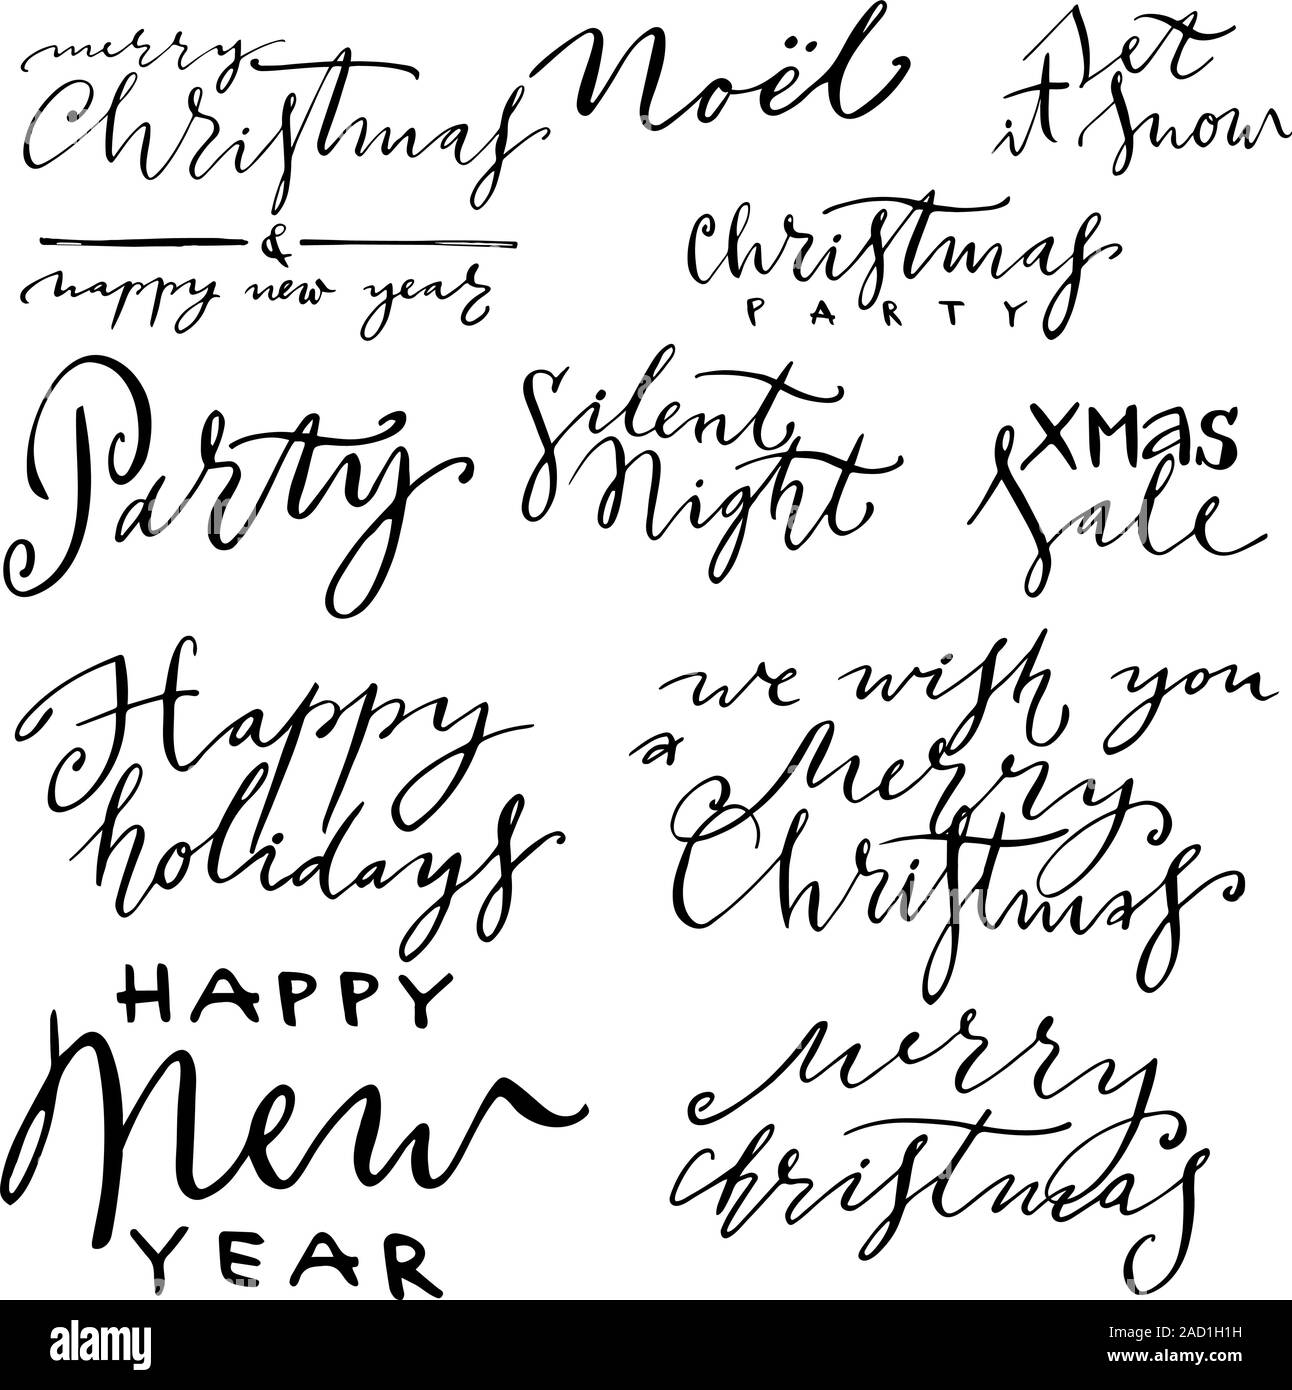 merry
Christmas
&
happy new year
Noël
Let
it Snow
Christmas
PARTY
Party
Silent
Night
XMAS
Sale
Happy
holidays
we wish you
a Merry
Christmas
HAPPY
New
YEAR
Merry
christmas
alamy
Image ID: 2AD1H1H
www.alamy.com